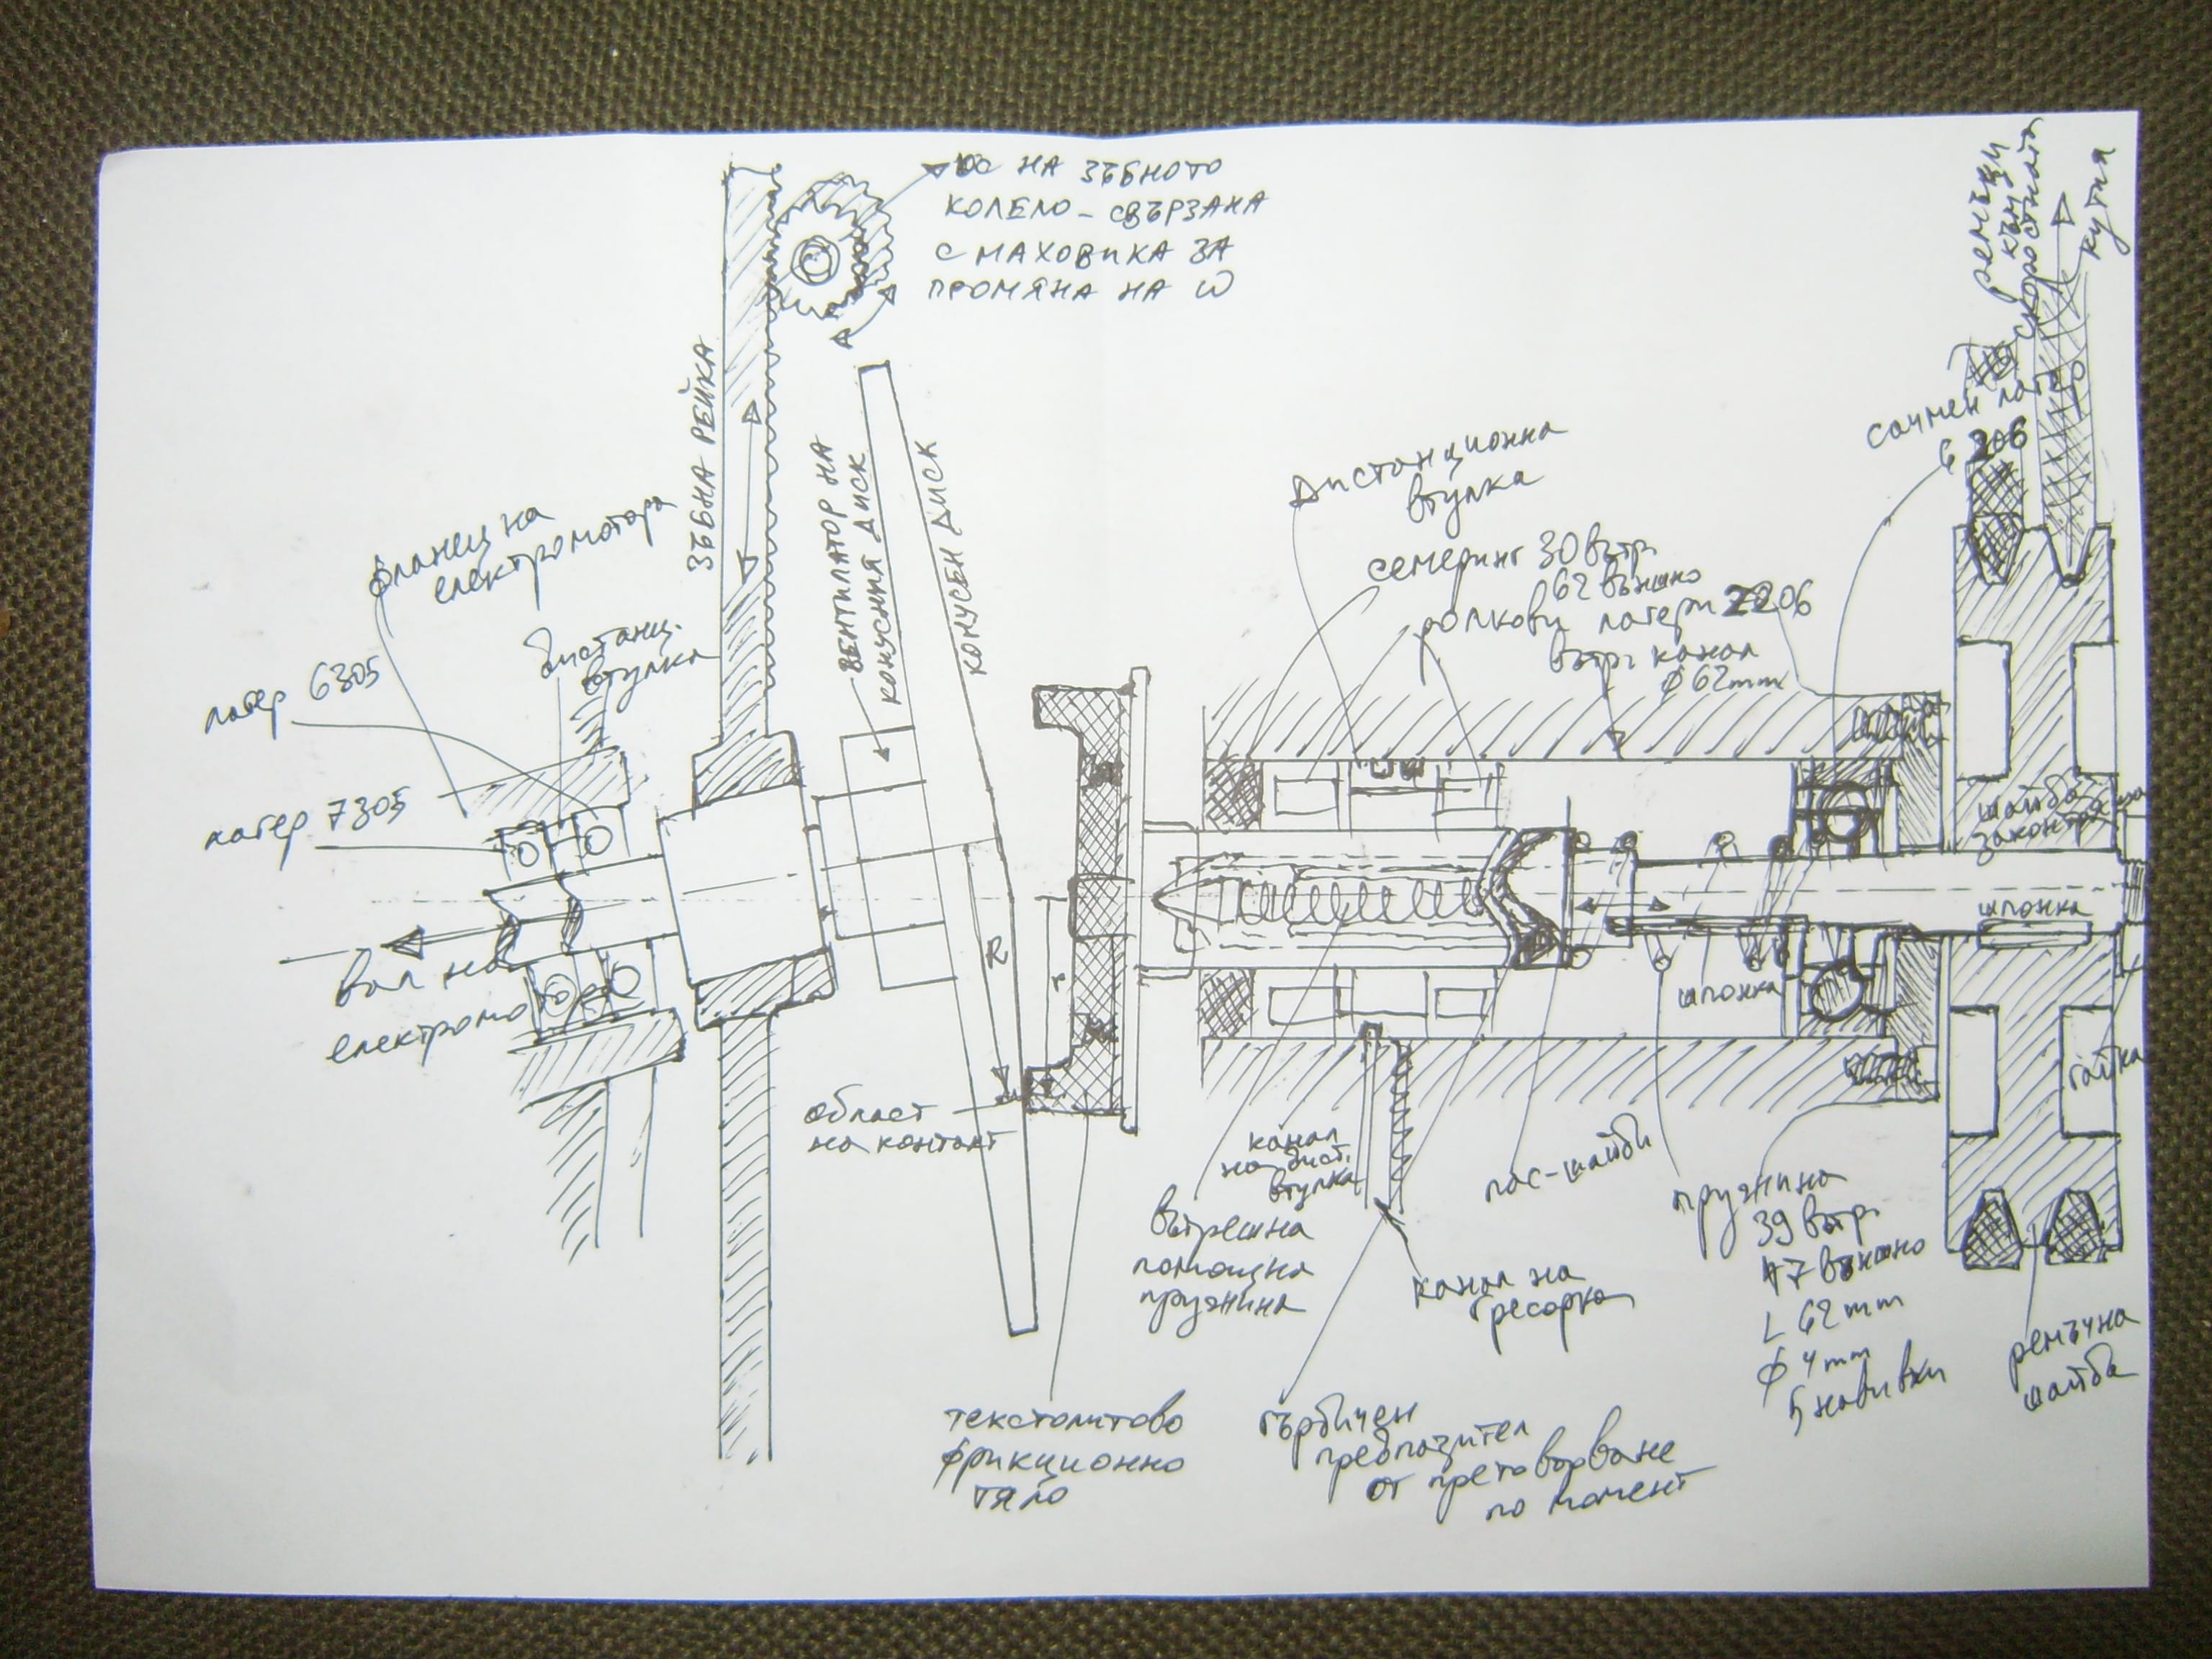 ос на зъбното
колело - свързана
с маховика за
промяна на ω
ремъци
към
скоростната
кутия
зъбна рейка
вентилатор на
конусния диск
конусен диск
фланец на
електромотора
дистанц.
втулка
лагер 6305
лагер 7305
вал на
електромотора
дистанционна
втулка
семеринг 30 вътр.
62 външно
ролкови лагери 2206
вътр. канал
ϕ 62mm
сачмен лагер
6206
шайба
шпонка
шпонка
гайка
R
r
област
на контакт
канал
на дист.
втулка
вътрешна
помощна
пружина
канал на
гресорка
лас-шайби
пружина
39 вътр.
47 външно
L 62mm
ϕ 4mm
5 навивки
ремъчна
шайба
текстолитово
фрикционно
тяло
гърбичен
предпазител
от претоварване
по момент